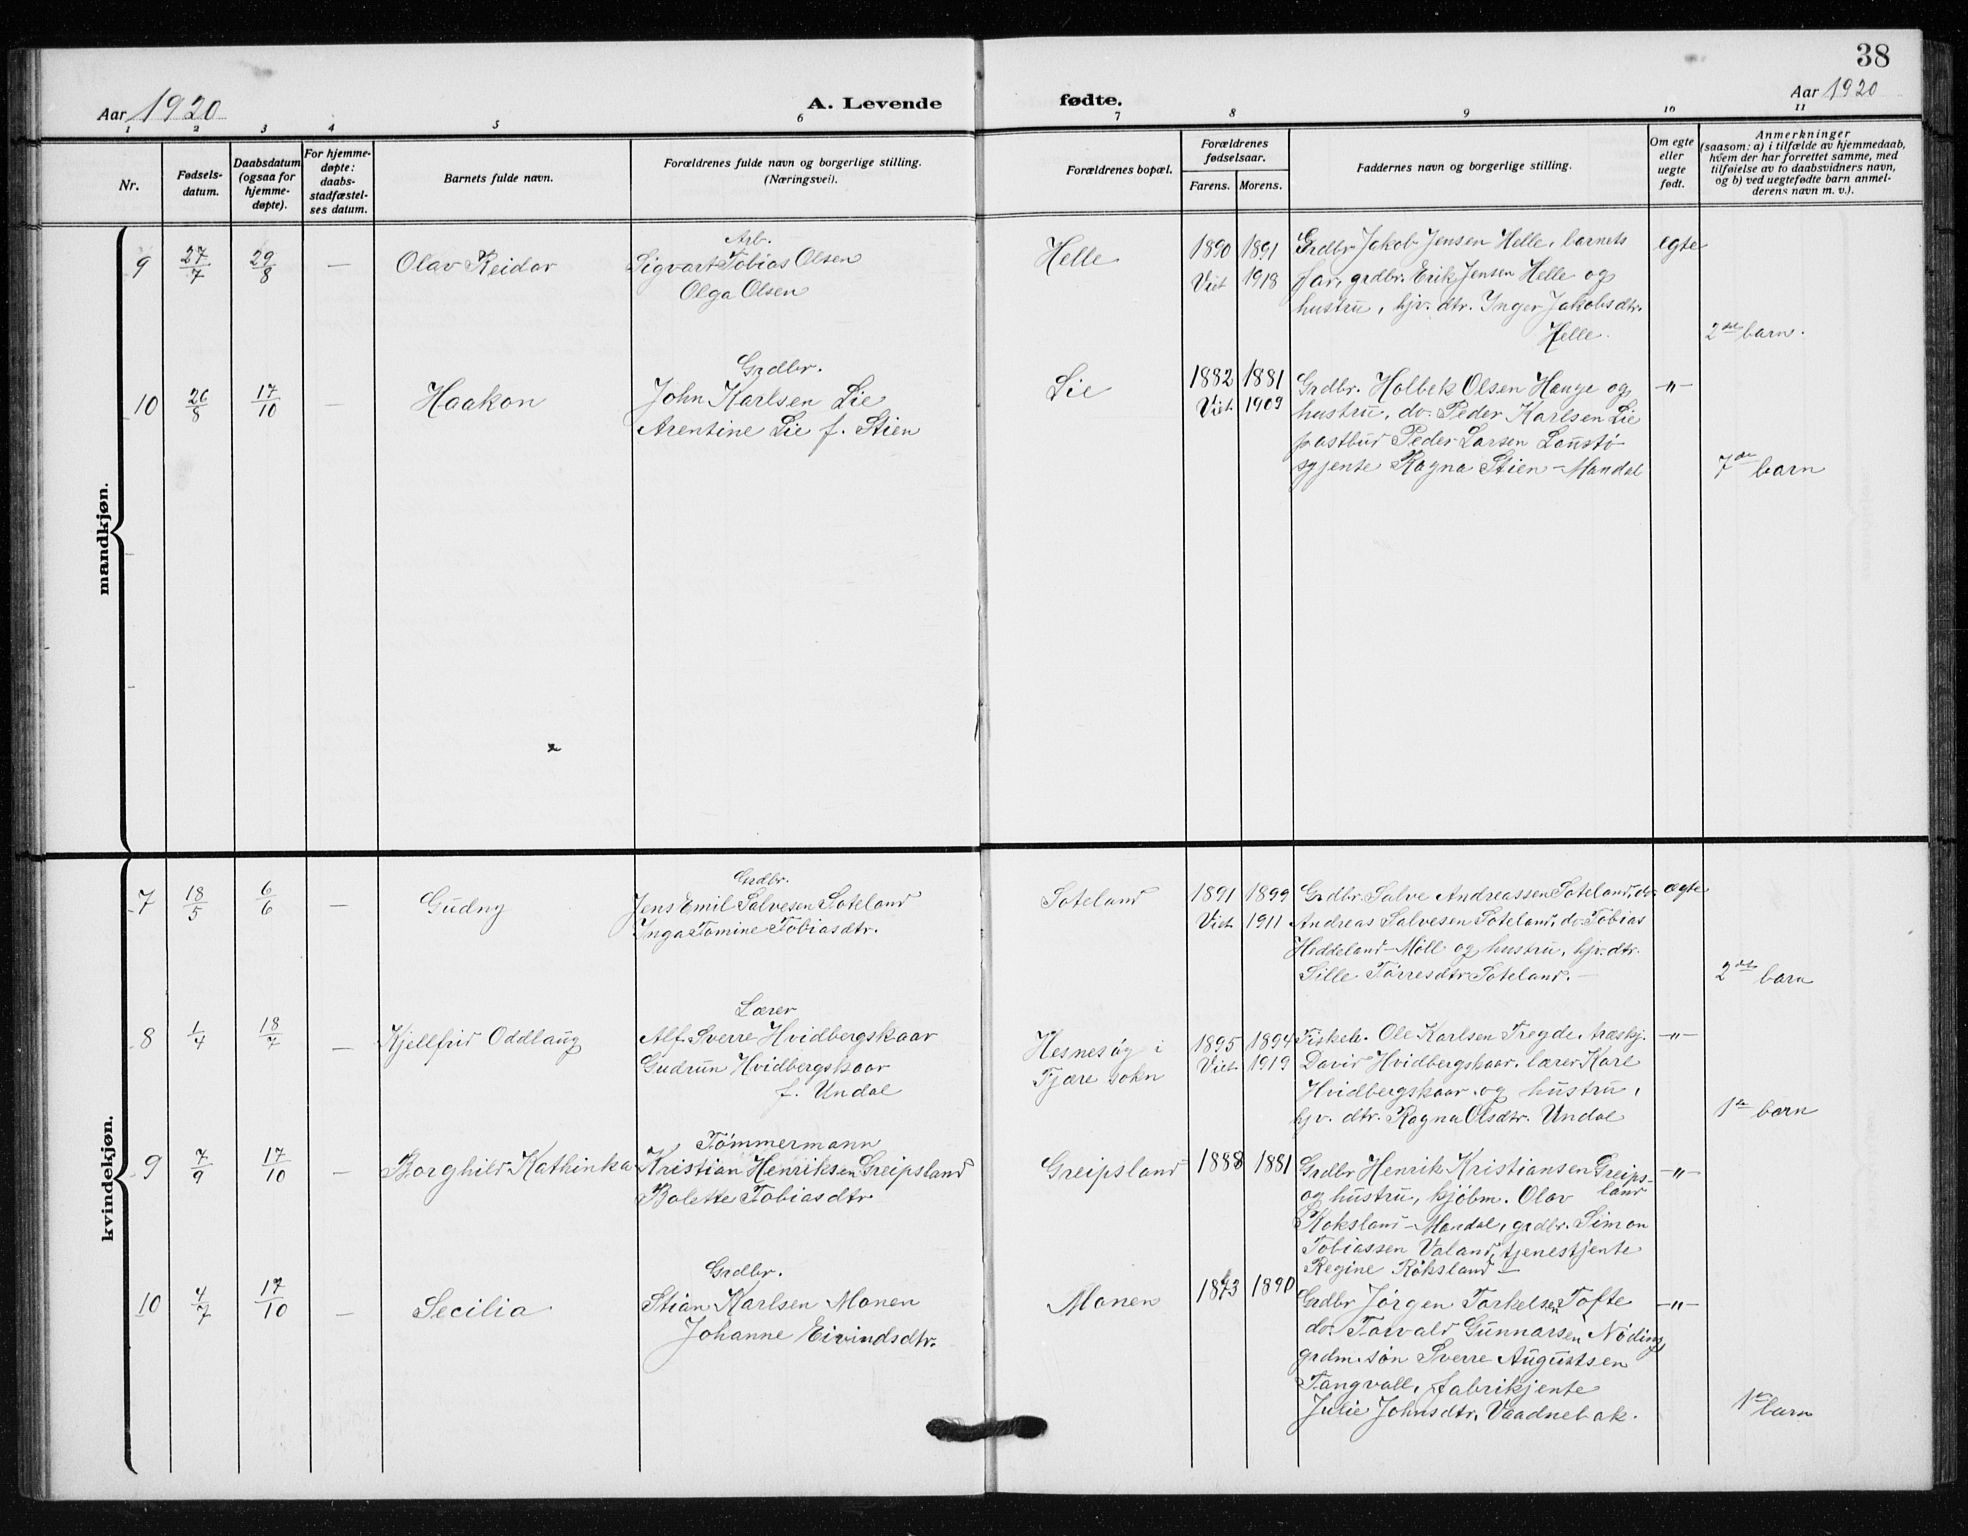 38
Aar 1920
A. Levende fødte.
Aar 1920
1 2 3 4 5 6 7 8 9 10 11
Nr.
Fødsels-
datum.
Daabsdatum
(ogsaa for
hjemme-
døpte).
For hjemme-
døpte:
daabs-
stadfæstel-
ses datum.
Barnets fulde navn.
Forældrenes fulde navn og borgerlige stilling.
(Næringsvei).
Forældrenes bopæl.
Forældrenes
fødselsaar.
Farens. Morens.
Faddernes navn og borgerlige stilling.
Om egte
eller
uegte
født.
Anmerkninger
(saasom: a) i tilfælde av hjemmedaab,
hvem der har forrettet samme, med
tilføielse av to daabsvidners navn,
og b) ved uegtefødte barn anmel-
derens navn m. v.).
mandkjøn.
9
27/7
29/8
—
Olav Reidar
Arb.
Sigvart Tobias Olsen
Olga Olsen
Helle
1890 1891
Viet 1918
Grdbr Jakob Jensen Helle, barnets
far, grdbr. Erik Jensen Helle og
hustru, hjv. dtr. Inger Jakobsdtr.
Helle.
egte
2det barn.
10
26/8
17/10
—
Haakon
Grdbr.
John Karlsen Lie
Arentine Lie f. Stien
Lie
1882 1881
Viet 1909
Grdbr. Holbek Olsen Hauge og
hustru, do. Peder Karlsen Lie
postbud Peder Larsen Laustø
syjente Ragna Stien – Mandal
–"–
7de barn
kvindekjøn.
7
18/5
6/6
—
Gudny
Grdbr.
Jens Emil Salvesen Soteland
Inga Tomine Tobiasdtr.
Soteland
1891 1899
Viet 1911
Grdbr. Salve Andreassen Soteland, do.
Andreas Salvesen Soteland, do. Tobias
Heddeland – Møll og hustru, hjv. dtr.
Sille Tørresdtr Soteland. –
egte
2det barn
8
1/7
18/7
—
Kjellfrid Oddlaug
Lærer
Alf Sverre Hvidbergskaar
Gudrun Hvidbergskaar
f. Undal
Hesnesøy i
Fjære sokn
1895 1894
Viet 1919
Fiskeb. Ole Karlsen Tregde, træskj.
David Hvidbergskaar, lærer Karl
Hvidbergskaar og hustru,
hjv. dtr. Ragna Olsdtr. Undal
–"–
1ste barn
9
7/9
17/10
—
Borghild Kathinka
Tømmermann
Kristian Henriksen Greipsland
Bolette Tobiasdtr
Greipsland
1888 1881
Grdbr Henrik Kristiansen Greips-
land
og hustru, kjøbm. Olav
Røksland – Mandal, grdbr. Simon
Tobiassen Valand, tjenestjente
Regine Røksland –
–"–
10
4/7
17/10
—
Secilia
Grdbr.
Stian Karlsen Monen
Johanne Eivindsdtr.
Monen
1890
Grdbr Jørgen Torkelsen Tofte
do. Torvald Gunnarsen Nøding
grdm. søn Sverre Augustsen
Tangvall, fabrikjente
Julie Johnsdtr, Vaadnebak.
–"–
1ste barn